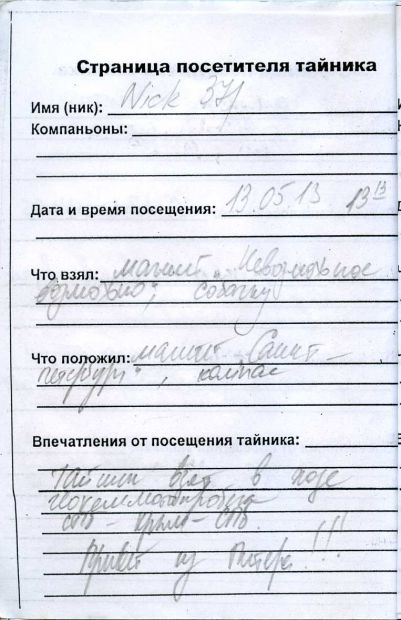 Страница посетителя тайника
Имя (ник): Nick 371
Компаньоны:
Дата и время посещения: 13.05.13 13 13
Что взял: магнит „Невозможное
возможно“, собачку
Что положил: магнит „Санкт-
Петербург“, компас
Впечатления от посещения тайника:
Тайник взят в ходе
СПб - Крым - СПб.
Привет из Питера!!!